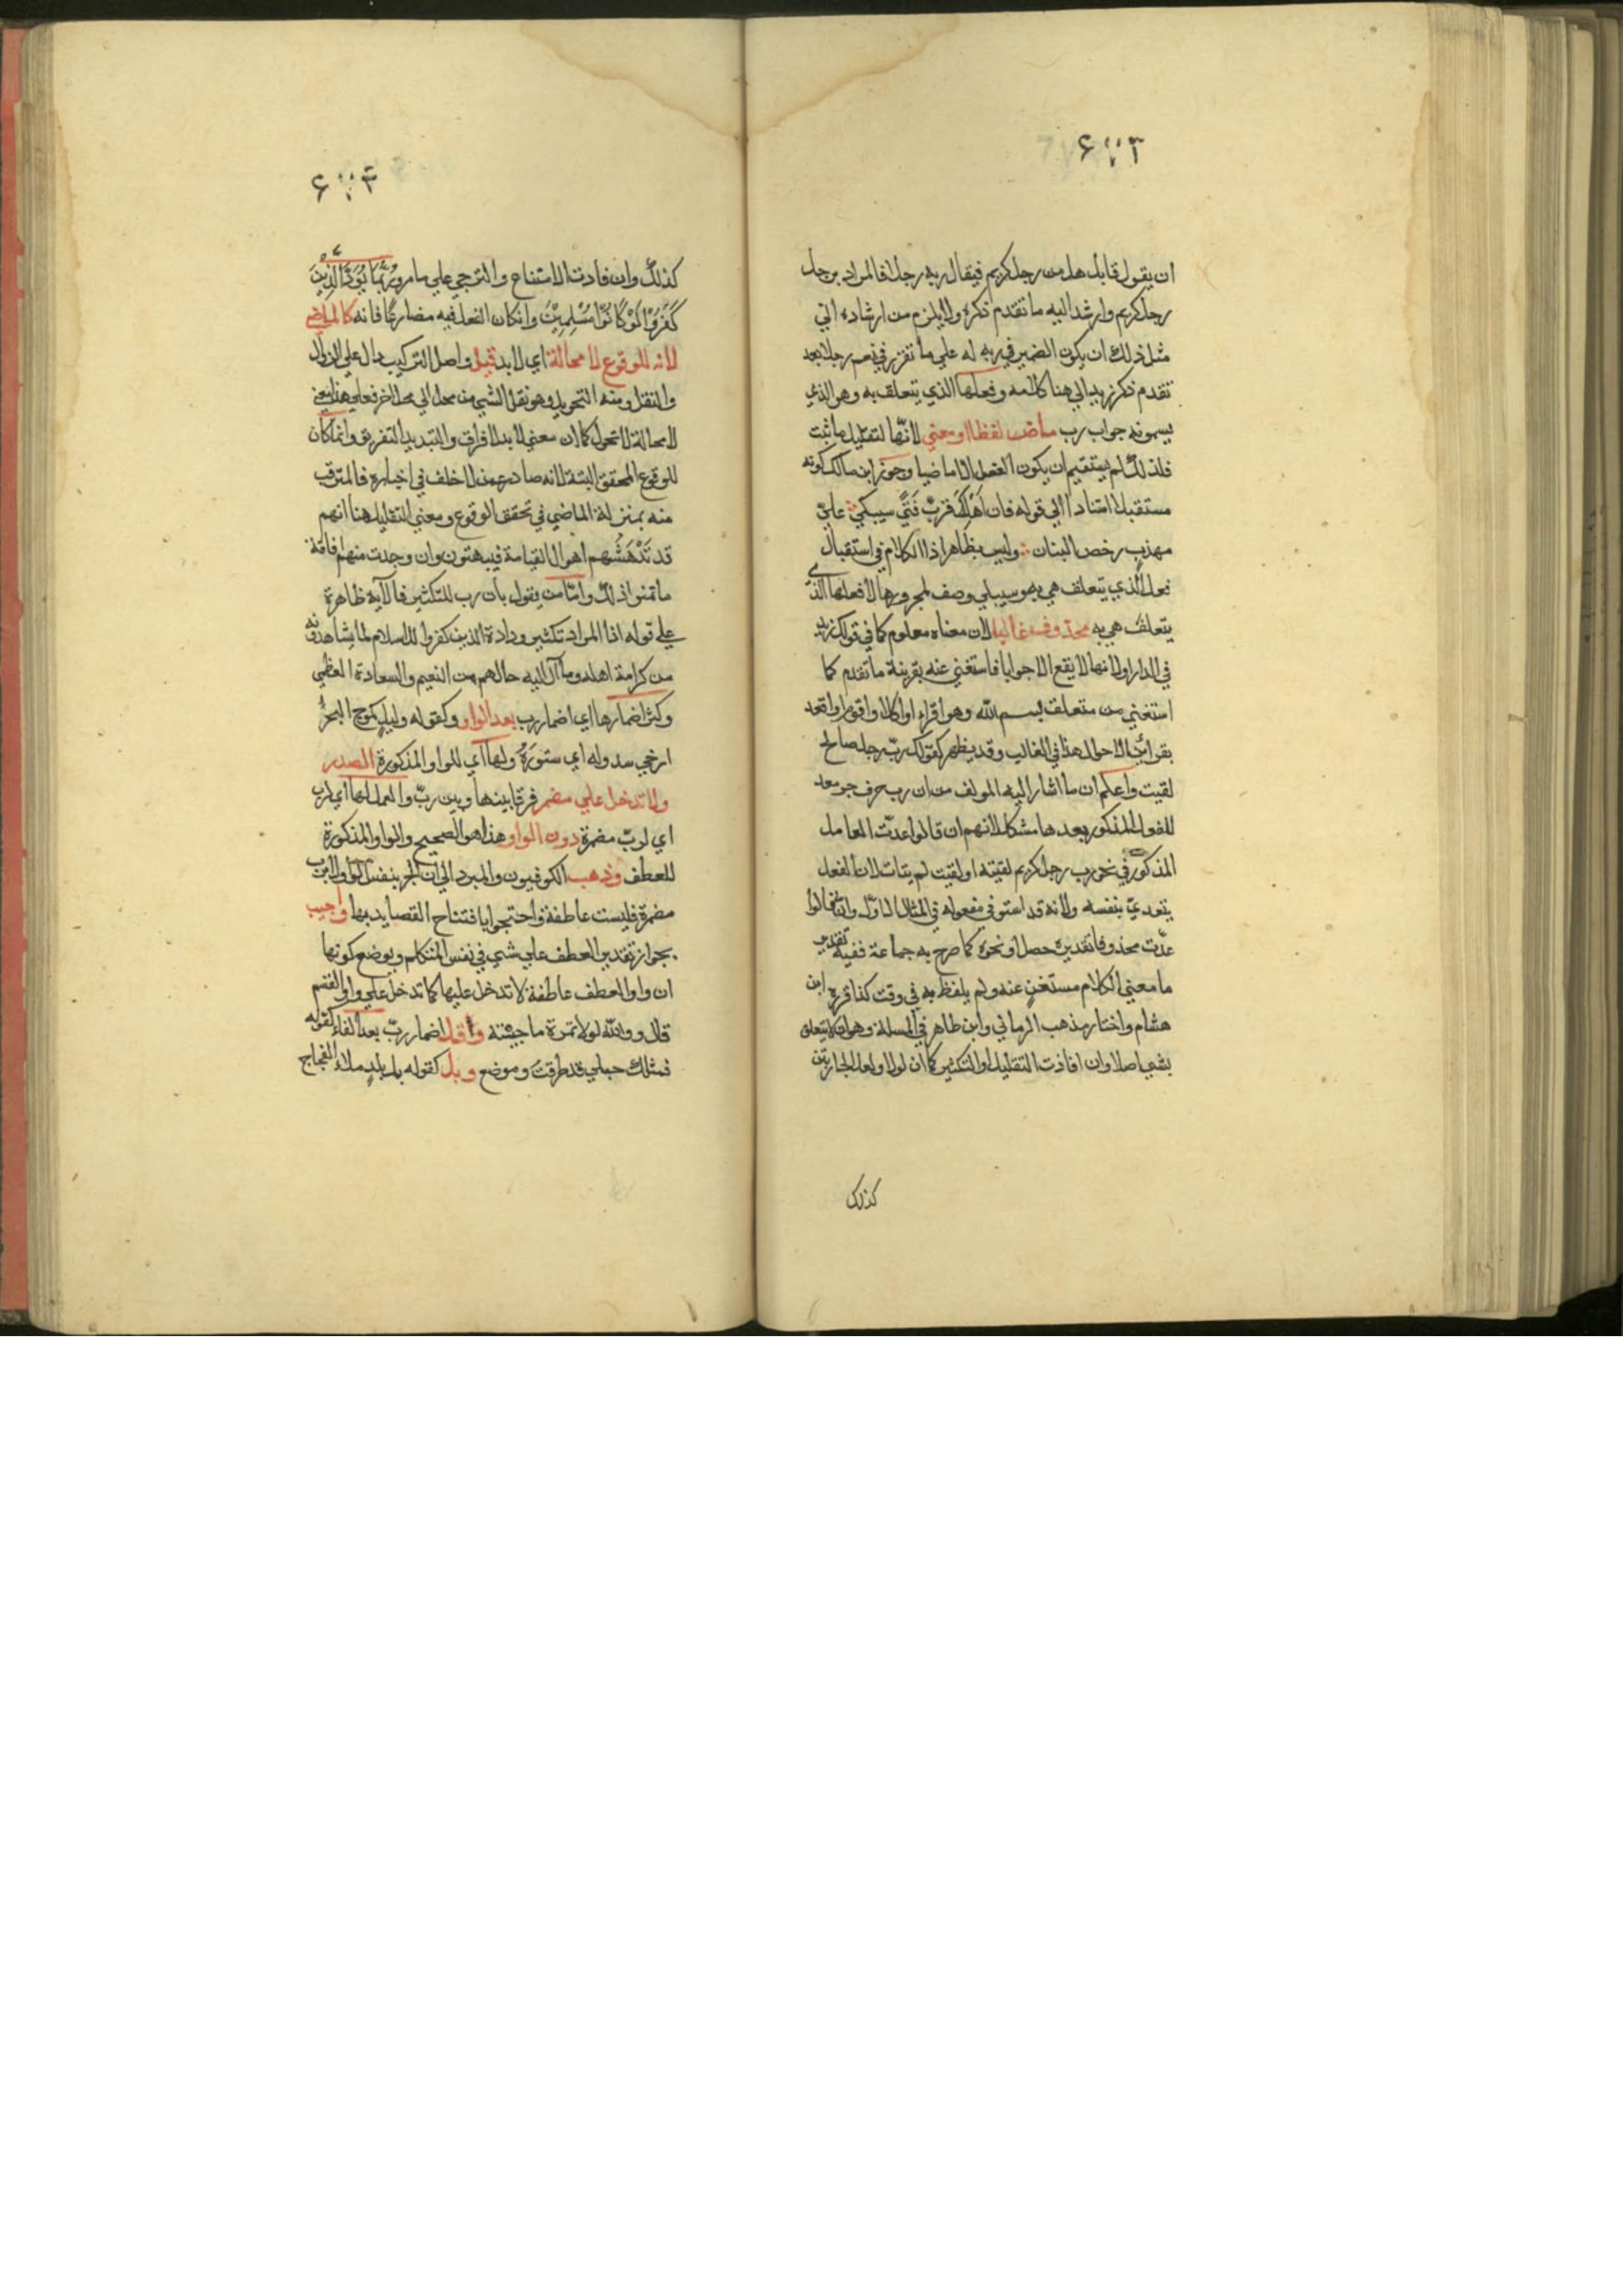 ان يقول قايل هل من رجل كريم فيقال ربه رجلا فالمراد برجل
رجل كريم وارشد اليه ما تقدم ذكره ولا يلزم من ارشاده الي
مثل ذلك ان يكون الضمير في ربه له علي ما تقرر في نعم رجلا بعد
تقدم ذكر زيد الي هنا كلامه وفعلها الذي يتعلق به وهو الذي
يسمونه جواب رب ماض لفظا او معني لانها لتقليل ما ثبت
فلذلك لم يستقيم ان يكون الفعل الا ماضيا وجوز ابن مالك كونه
مستقبلا استنادا الي قوله فان اهلك فرب فتي سيبكي علي
مهذب رخص البنان وليس بظاهر اذا الكلام في استقبال
الذي يتعلق هي به وسيبلي وصف لمجرورها لا فعلها الذي
يتعلق هي به محذوف غالبا لان معناه معلوم كما في قولك زيد
في الدار او لانها لا يقع الا جوابا فاستغني عنه بقرينة ما تقدم كما
استغني من متعلق بسم الله وهو اقراء او اكل او اقوم او اقعد
بقرائن الاحوال هذا في الغالب وقد يظهر كقولك رب رجل صالح
لقيت واعلم ان ما اشار اليه المولف من ان رب حرف جر معد
للفعل المذكور بعدها مشكل لانهم ان قالوا عدت العامل
المذكور في نحو رب رجل كريم لقيته او لقيت لم يتات لان الفعل
يتعدي بنفسه ولانه قد استوفي مفعوله في المثال الاول وان قالوا
عدت محذوفا تقديره حصل او نحوه كما صرح به جماعة ففيه تقدير
ما معني الكلام مستغن عنه ولم يلفظ به في وقت كذا قرره ابن
هشام واختار مذهب الرماني وابن طاهر في المسلة وهو ان لا يتعلق
بشي اصلا وان افادت التقليل او التكثير كما ان لولا ولعل الجارتين
كذلك
كذلك وان فادت الامتناع والترجي علي ما مر وربما يود الذين
كفروا لو كانوا مسلمين وان كان الفعل فيه مضارعا فانه كالماضي
لانه للوقوع لا محالة اي لا بد قيل واصل التركيب دال علي الزوال
والنقل ومنه التحويل وهو نقل الشي من محل الي محل اخر فعلي هذا معني
لا محالة لا تحول كما ان معني لا بد لا فراق والتبديد التفريق وانما كان
للوقوع المحقق البتة لانه صادر عمن لا خلف في اخباره فالمترقب
منه بمنزلة الماضي في تحقق الوقوع ومعني التقليل هنا انهم
قد تدهشهم اهوال القيامة فيبهتون وان وجدت منهم افاقة
ما تمنوا ذلك واما من يقول بان رب للتكثير فالاية ظاهرة
علي قوله اذا المراد تكثير ودادة الذين كفروا للاسلام لما يشاهدونه
من كرامة اهله وما آل اليه حالهم من النعيم والسعادة العظمي
وكثر اضمارها اي اضمار رب بعد الواو وكقوله وليل كموج البحر
ارخي سدوله اي ستوره ولها اي للواو المذكورة الصدر
ولا تدخل علي مضمر فرقا بينها وبين رب والعمل لها اي لرب
اي لرب مضمرة دون الواو هذا هو الصحيح والواو المذكورة
للعطف وذهب الكوفيون والمبرد الي ان الجر بنفس الواو لا برب
مضمرة فليست عاطفة واحتجوا بافتتاح القصايد بها واجيب
بجواز تقدير العطف علي شي في نفس المتكلم ويوضح كونها
ان واو العطف عاطفة لا تدخل عليها كما تدخل علي واو القسم
قال ووالله لولا تمره ما حببته واقل اضمار رب بعد الفاء كقوله
فمثلك حبلي قد طرقت وموضع وبل كقوله بل بلد ملاء الفجاج